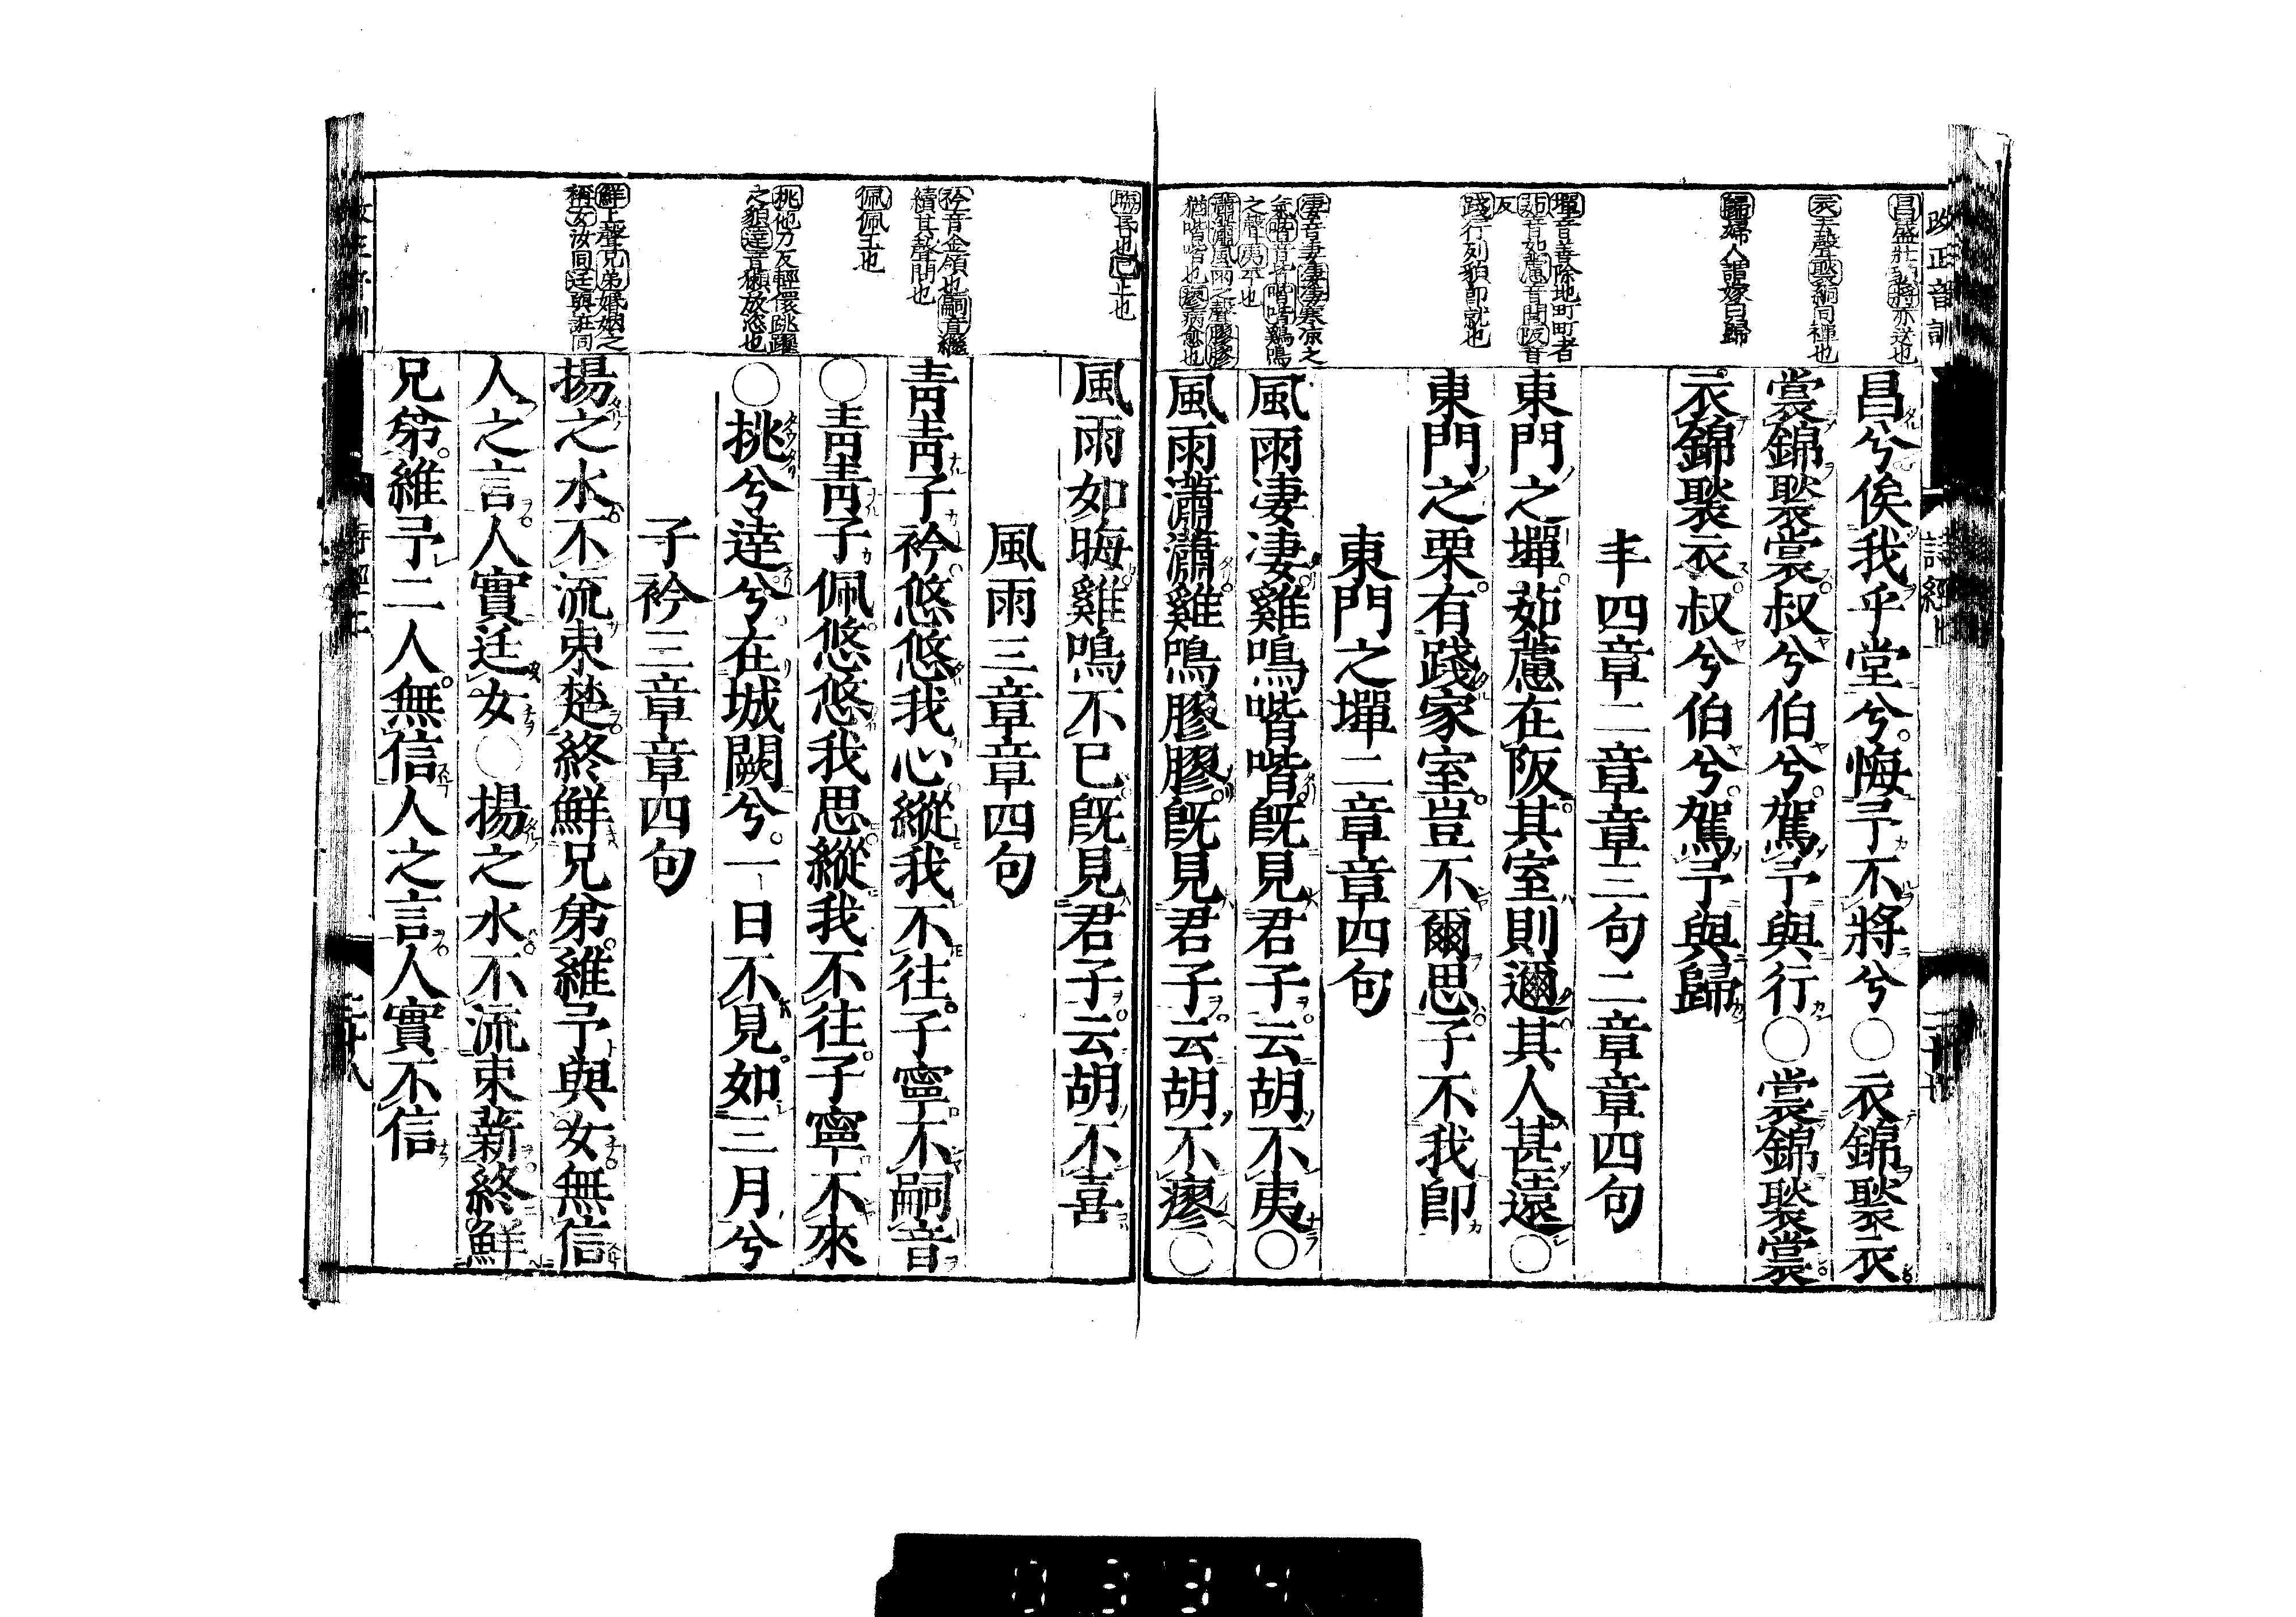 改正音訓
詩經
昌盛壯貌將亦送也
昌兮俟我乎堂兮悔予不將兮○衣錦褧衣
褧綗同襌也
裳錦褧裳叔兮伯兮駕予與行○裳錦褧裳
歸婦人謂嫁曰歸
衣錦褧衣叔兮伯兮駕予與歸
丰四章二章章三句二章章四句
墠音善除地町町者
茹音如藘音閭阪音
反
東門之墠茹藘在阪其室則邇其人甚遠○
踐行列貌卽就也
東門之栗有踐家室豈不爾思子不我卽
東門之墠二章章四句
凄音妻凄凄寒凉之
氣喈音皆喈喈鷄鳴
之聲夷平也
風雨凄凄雞鳴喈喈旣見君子云胡不夷○
瀟瀟風雨之聲膠膠
猶喈喈也瘳病愈也
風雨瀟瀟雞鳴膠膠旣見君子云胡不瘳○
晦昏也已止也
風雨如晦雞鳴不已旣見君子云胡不喜
風雨三章章四句
衿音金領也嗣音繼
續其聲問也
青青子衿悠悠我心縱我不往子寧不嗣音
佩佩玉也
○青青子佩悠悠我思縱我不往子寧不來
挑他刀反輕儇跳躍
之貌達音獺放恣也
○挑兮達兮在城闕兮一日不見如三月兮
子衿三章章四句
鮮上聲兄弟婚姻之
稱女汝同迋與誑同
揚之水不流束楚終鮮兄弟維予與女無信
人之言人實迋女○揚之水不流束薪終鮮
兄弟維予二人無信人之言人實不信
詩經上
二十八
0334